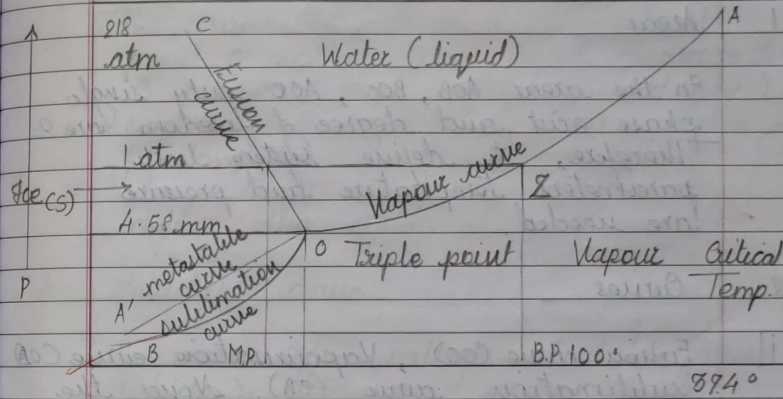 218 C A
atm Water (liquid)
Fusion
curve
1 atm Vapour curve
Ice(s) Z
4.58 mm
O Triple point Vapour Critical
Temp.
metastable
curve
P A' sublimation
curve
B M.P. B.P. 100°
374°